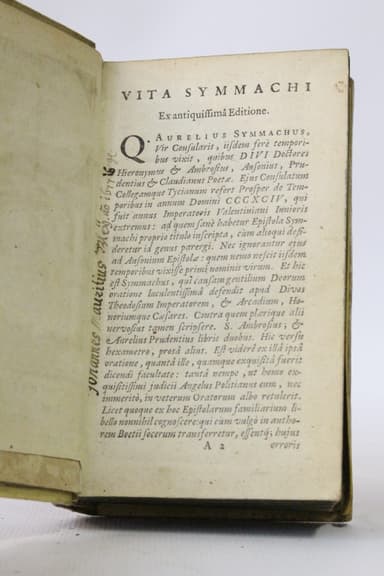 VITA SYMMACHI
Ex antiquissimâ Editione.
Q. AURELIUS SYMMACHUS,
Vir Consularis, iisdem ferè tempori-
bus vixit, quibus DIVI Doctores
Hieronymus & Ambrosius, Ausonius, Pru-
dentius & Claudianus Poetæ. Ejus Consulatum
Collegamque Tycianum refert Prosper de Tem-
poribus in annum Domini CCCXCIV, qui
fuit annus Imperatoris Valentiniani Iunioris
extremus: ad quem sanè habetur Epistola Sym-
machi proprio titulo inscripta, cùm alioqui desi-
deretur id genus parergi. Nec ignorantur ejus
ad Ausonium Epistolæ: quem nemo nescit iisdem
temporibus vixisse primi nominis virum. Et hic
est Symmachus, qui causam gentilium Deorum
oratione luculentissimâ defendit apud Divos
Theodosium Imperatorem, & Arcadium, Ho-
noriumque Cæsares. Contra quem plærique alii
nervosius tamen scripsere. S. Ambrosius, &
Aurelius Prudentius libris duobus. Hic versu
hexametro, prosâ alius. Est videre ex illâ ipsâ
oratione, quantâ ille, quamque exquisitâ fuerit
dicendi facultate: tantâ nempe, ut homo ex-
quisitissimi judicii Angelus Politianus eum, nec
immeritò, in veterum Oratorum albo retulerit.
Licet quoque ex hoc Epistolarum familiarium li-
bello nonnihil cognoscere: qui cum vulgò in autho-
rem Boetii socerum transferretur, essentq; hujus
A 2 erroris
Johannes Mauritius